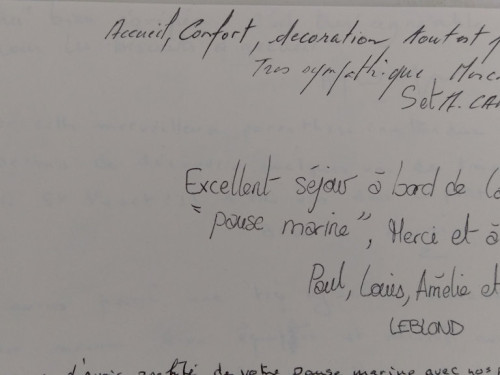 Accueil, Confort, decoration tout est
Tres sympathique Merc
S et A. CAR
Excellent séjour à bord de la
"pause marine", Merci et à
Paul, Louis, Amélie et
LEBLOND
d'avoir profité de votre pause marine avec nos